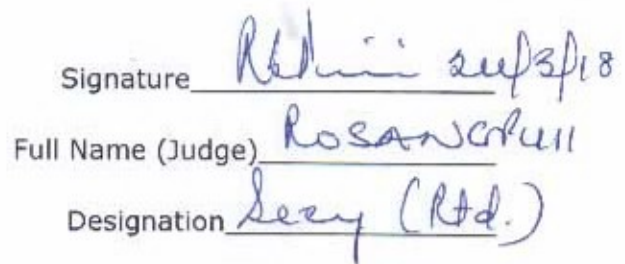 Signature 24/3/18
Full Name (Judge) ROSANGPUII
Designation Secy (Rtd.)